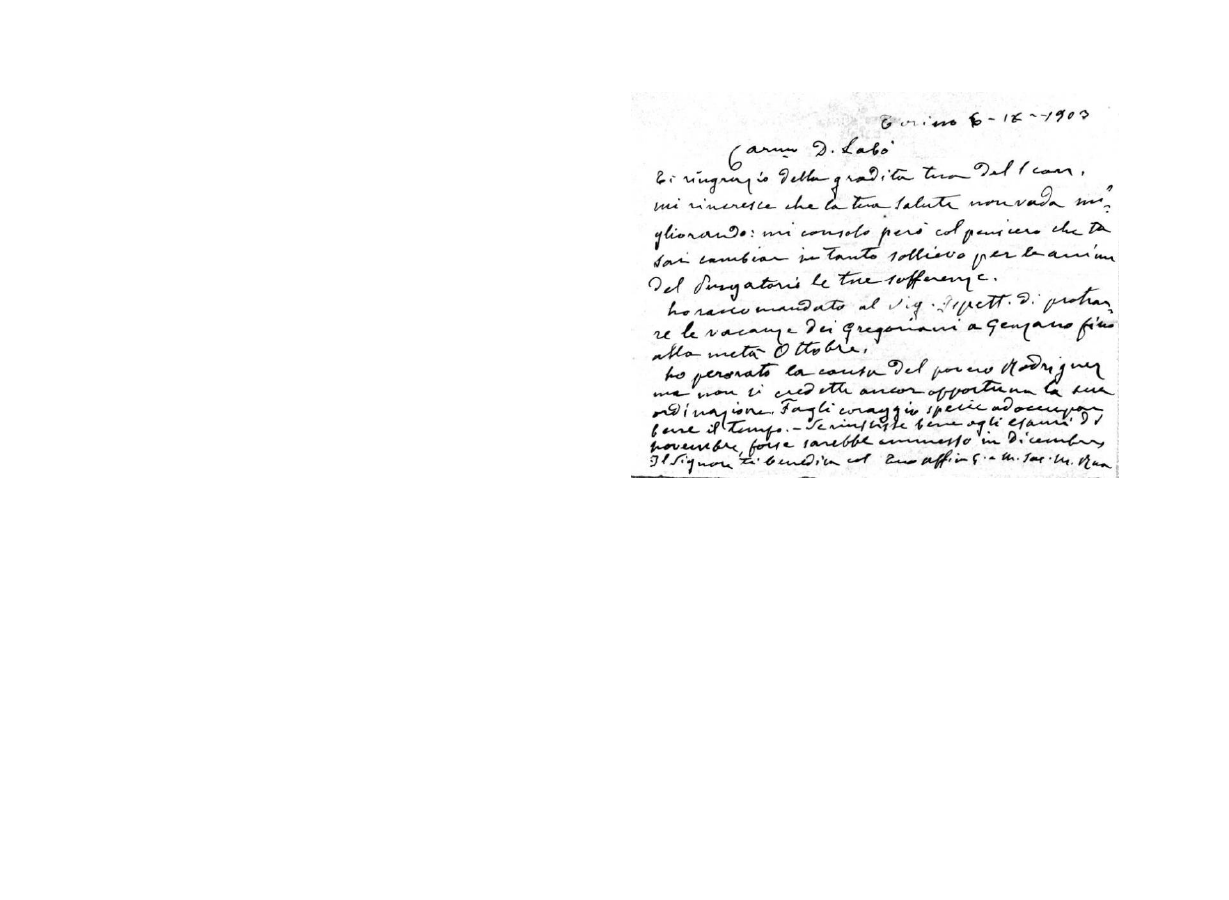 Torino 6-IX-1903
Carmo D. Labó
Ti ringrazio della gradita tua del 1 corr.
mi rincresce che la tua salute non vada mi-
gliorando: mi consolo però col pensiero che tu
sai cambiar in tanto sollievo per le anime
del Purgatorio le tue sofferenze.
ho raccomandato al Sig. Ispett. di protrar-
re le vacanze dei Gregoriani a Genzano fino
alla metà Ottobre.
ho perorato la causa del povero Rodriguez
ma non si credette ancor opportuna la sua
ordinazione. Fagli coraggio specie ad occupar
bene il tempo. - Se riuscisse bene agli esami di
novembre, forse sarebbe ammesso in dicembre
Il Signore ti benedica col Tuo affmo in G. e M. Sac. M. Rua